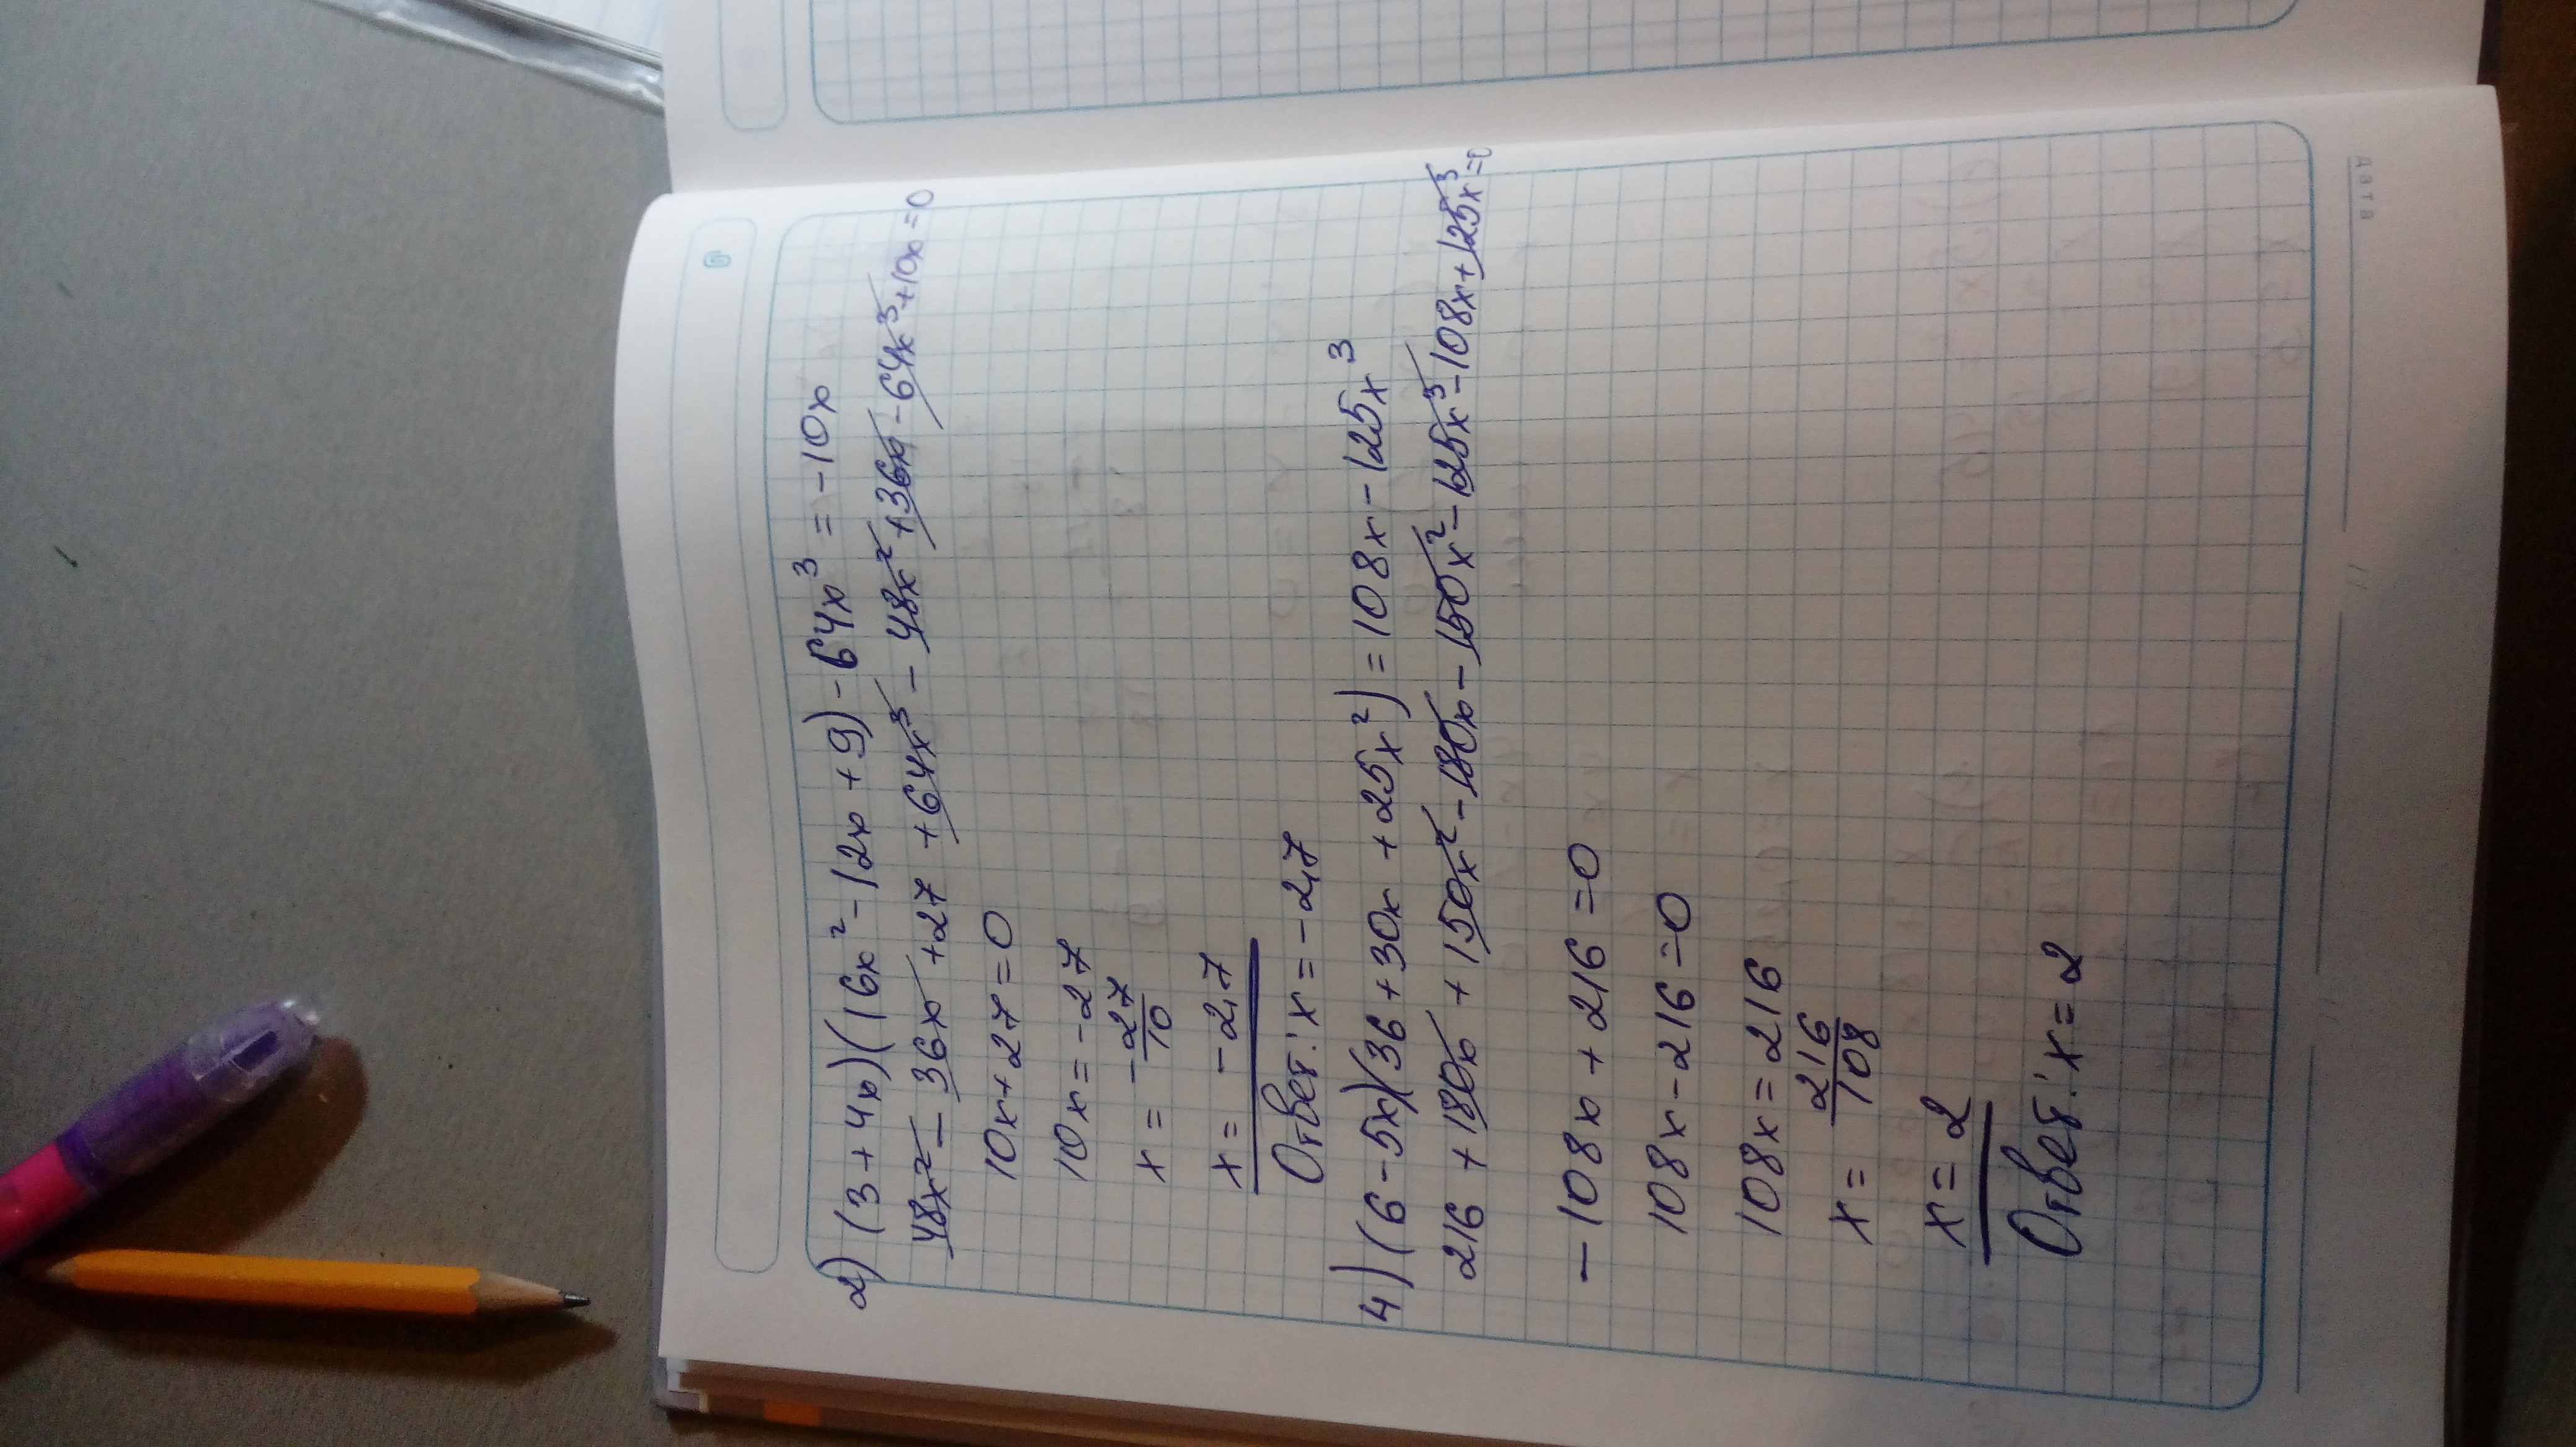 2) (3+4x)(16x² - 12x + 9) - 64x³ = -10x
48x² - 36x + 27 + 64x³ - 48x² + 36x - 64x³ + 10x = 0
10x + 27 = 0
10x = -27
x = -27/10
x = -2,7
Ответ: x = -2,7
4) (6-5x)(36 + 30x + 25x²) = 108x - 125x³
216 + 180x + 150x² - 180x - 150x² - 125x³ - 108x + 125x³ = 0
-108x + 216 = 0
108x - 216 = 0
108x = 216
x = 216/108
x = 2
Ответ: x = 2
Дата